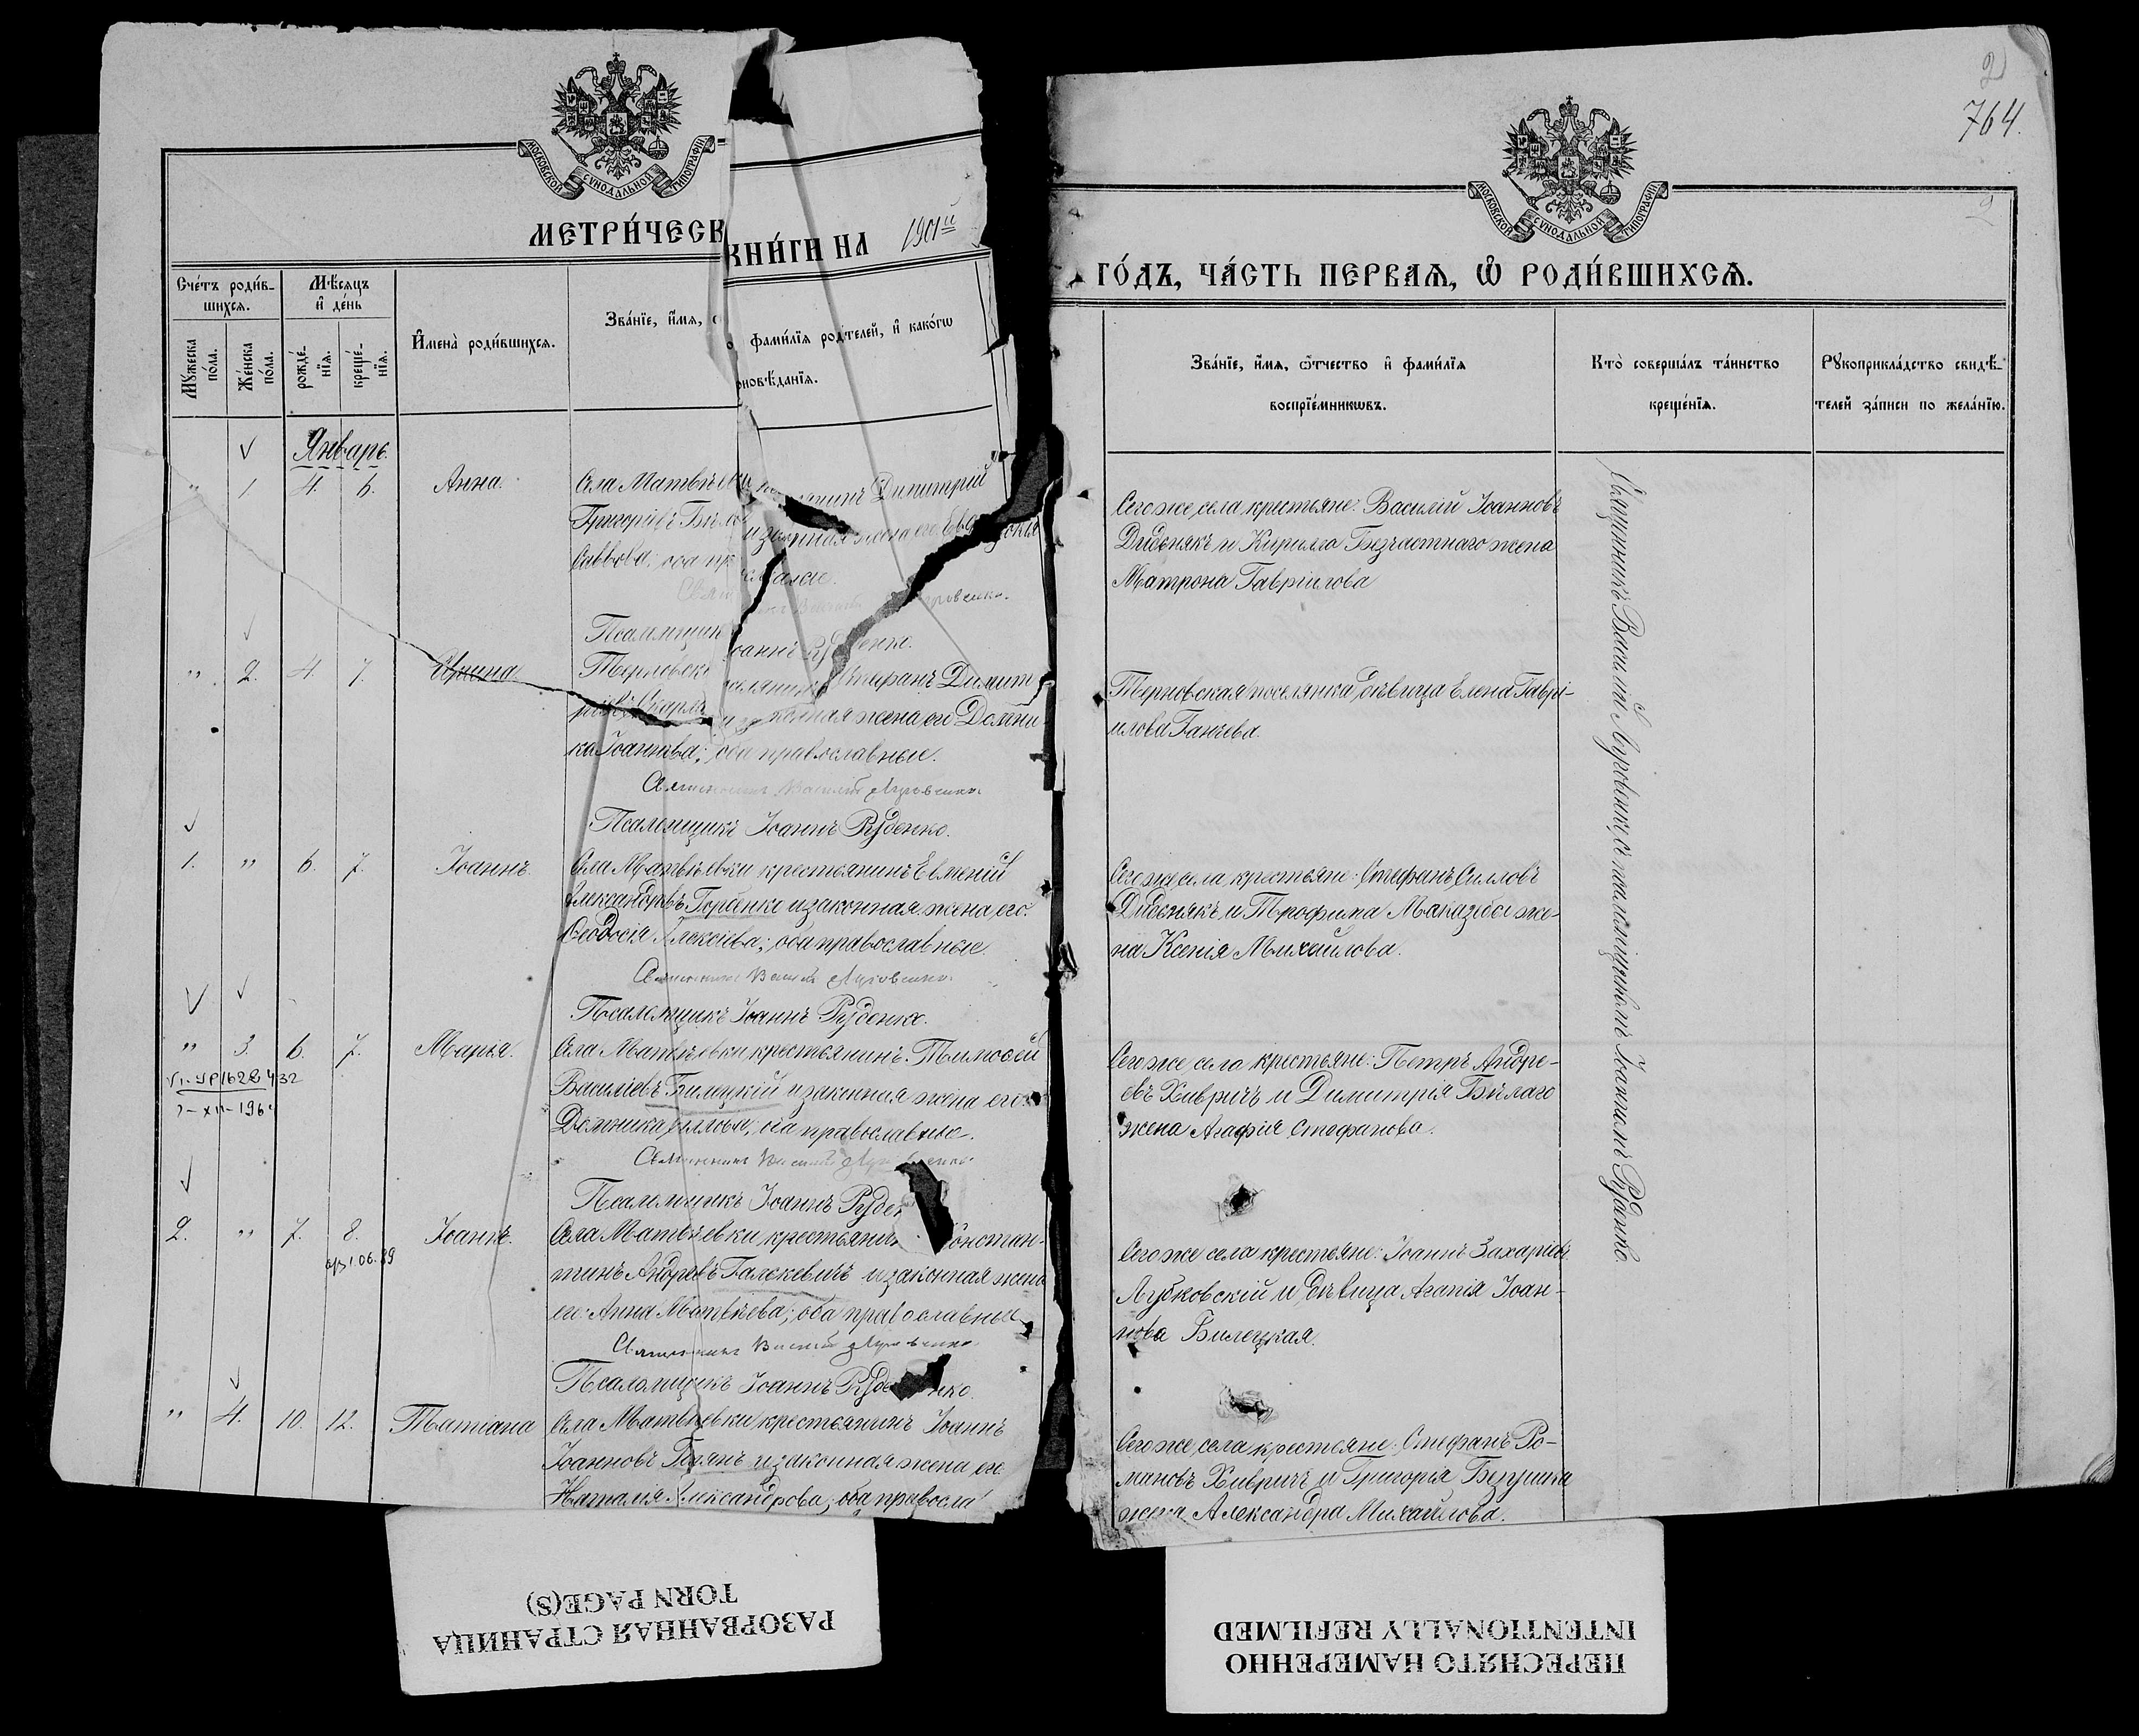 2
764.
МОСКОВСКОЙ СѴНОДАЛЬНОЙ ТИПОГРАФІИ
МОСКОВСКОЙ СѴНОДАЛЬНОЙ ТИПОГРАФІИ
МЕТРИ́ЧЕСК КНИ́ГИ НА 1901й
ГО́ДЪ, ЧА́СТЬ ПЕРВАѦ, Ѡ҆ РОДИ́ВШИХСѦ.
Сче́тъ роди́в-
шихсѧ.
Мѣ́сѧцъ
и҆ де́нь
Мꙋ́жеска
по́ла.
Же́нска
по́ла.
рожде́-
нїѧ.
креще́-
нїѧ.
И҆мена̀ роди́вшихсѧ.
Зва́нїе, и҆́мѧ, о
фами́лїѧ роди́телей, и҆ како́гѡ
новѣ́данїѧ.
Зва́нїе, и҆́мѧ, ѻ҆́тчество и҆ фами́лїѧ
воспрїе́мникѡвъ.
Кто̀ соверша́лъ та́инство
креще́нїѧ.
Рꙋкоприкла́дство свидѣ́-
телей за́писи по жела́нїю.
Январь.
" 1 4. 6. Анна.
Села Матвѣевки Димитрій
Григоріевъ законная жена его Евдокія
Саввова; оба
Псаломщикъ Іоаннъ Руденко.
Сего же села крестьяне: Василій Іоанновъ
Дибнякъ и Кирилла Безчастнаго жена
Матрона Гавріилова
" 2. 4. 7. Ирина
Терновскі поселянинъ Стефанъ Димит
ріевъ законная жена его Домни-
ка Іоаннова; оба православные.
Священникъ Василій Луговенко.
Псаломщикъ Іоаннъ Руденко.
Терновская поселянка, дѣвица Елена Гаврі-
илова Ганчева.
1. " 6. 7. Іоаннъ.
Села Матвѣевки крестьянинъ Евменій
Александровъ Горбенко и законная жена его
Ѳеодосія Алексіева; оба православные.
Священникъ Василій Луговенко.
Псаломщикъ Іоаннъ Руденко.
Сего же села крестьяне: Стефанъ Силловъ
Дибнякъ и Трофима Маказебы же-
на Ксенія Михайлова.
" 3. 6. 7. Марья.
Села Матвѣевки крестьянинъ Тимоѳей
Василіевъ Билецкій и законная жена его
Домника оба православные.
Священникъ Василій Луговенко
Псаломщикъ Іоаннъ Руден
Сего же села крестьяне: Петръ Андре-
евъ Хивричъ и Димитрія Бѣлаго
жена Агафія Стефанова.
2. " 7. 8. Іоаннъ.
Села Матвѣевки крестьянинъ Констан-
тинъ Андреевъ Галскевичъ и законная жена
его Анна Матвѣева; оба православны
Священникъ Василій Луговенко.
Псаломщикъ Іоаннъ Руденко.
Сего же села крестьяне: Іоаннъ Захаріевъ
Лубковскій и дѣвица Агапія Іоан-
нова Билецкая.
" 4. 10. 12. Татіана
Села Матвѣевки крестьянинъ Іоаннъ
Іоанновъ и законная жена его
Наталія Александрова; оба правосла
Сего же села крестьяне: Стефанъ Ро-
мановъ Хивричъ и Григорія Безушка
жена Александра Михайлова.
Священникъ Василій Луговенко съ псаломщикомъ Іоанномъ Руденко.
РАЗОРВАННАЯ СТРАНИЦА
TORN PAGE(S)
ПЕРЕСНЯТО НАМЕРЕННО
INTENTIONALLY REFILMED